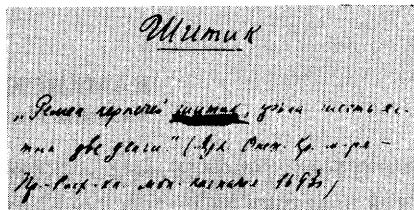 Шитик
„Ремен черпчей шитик, цена шесть ал-
тын две денги“ (Арх. Онеж. Кр. м-ря –
Пр.-Расх. кн. мон. казначея 1693,